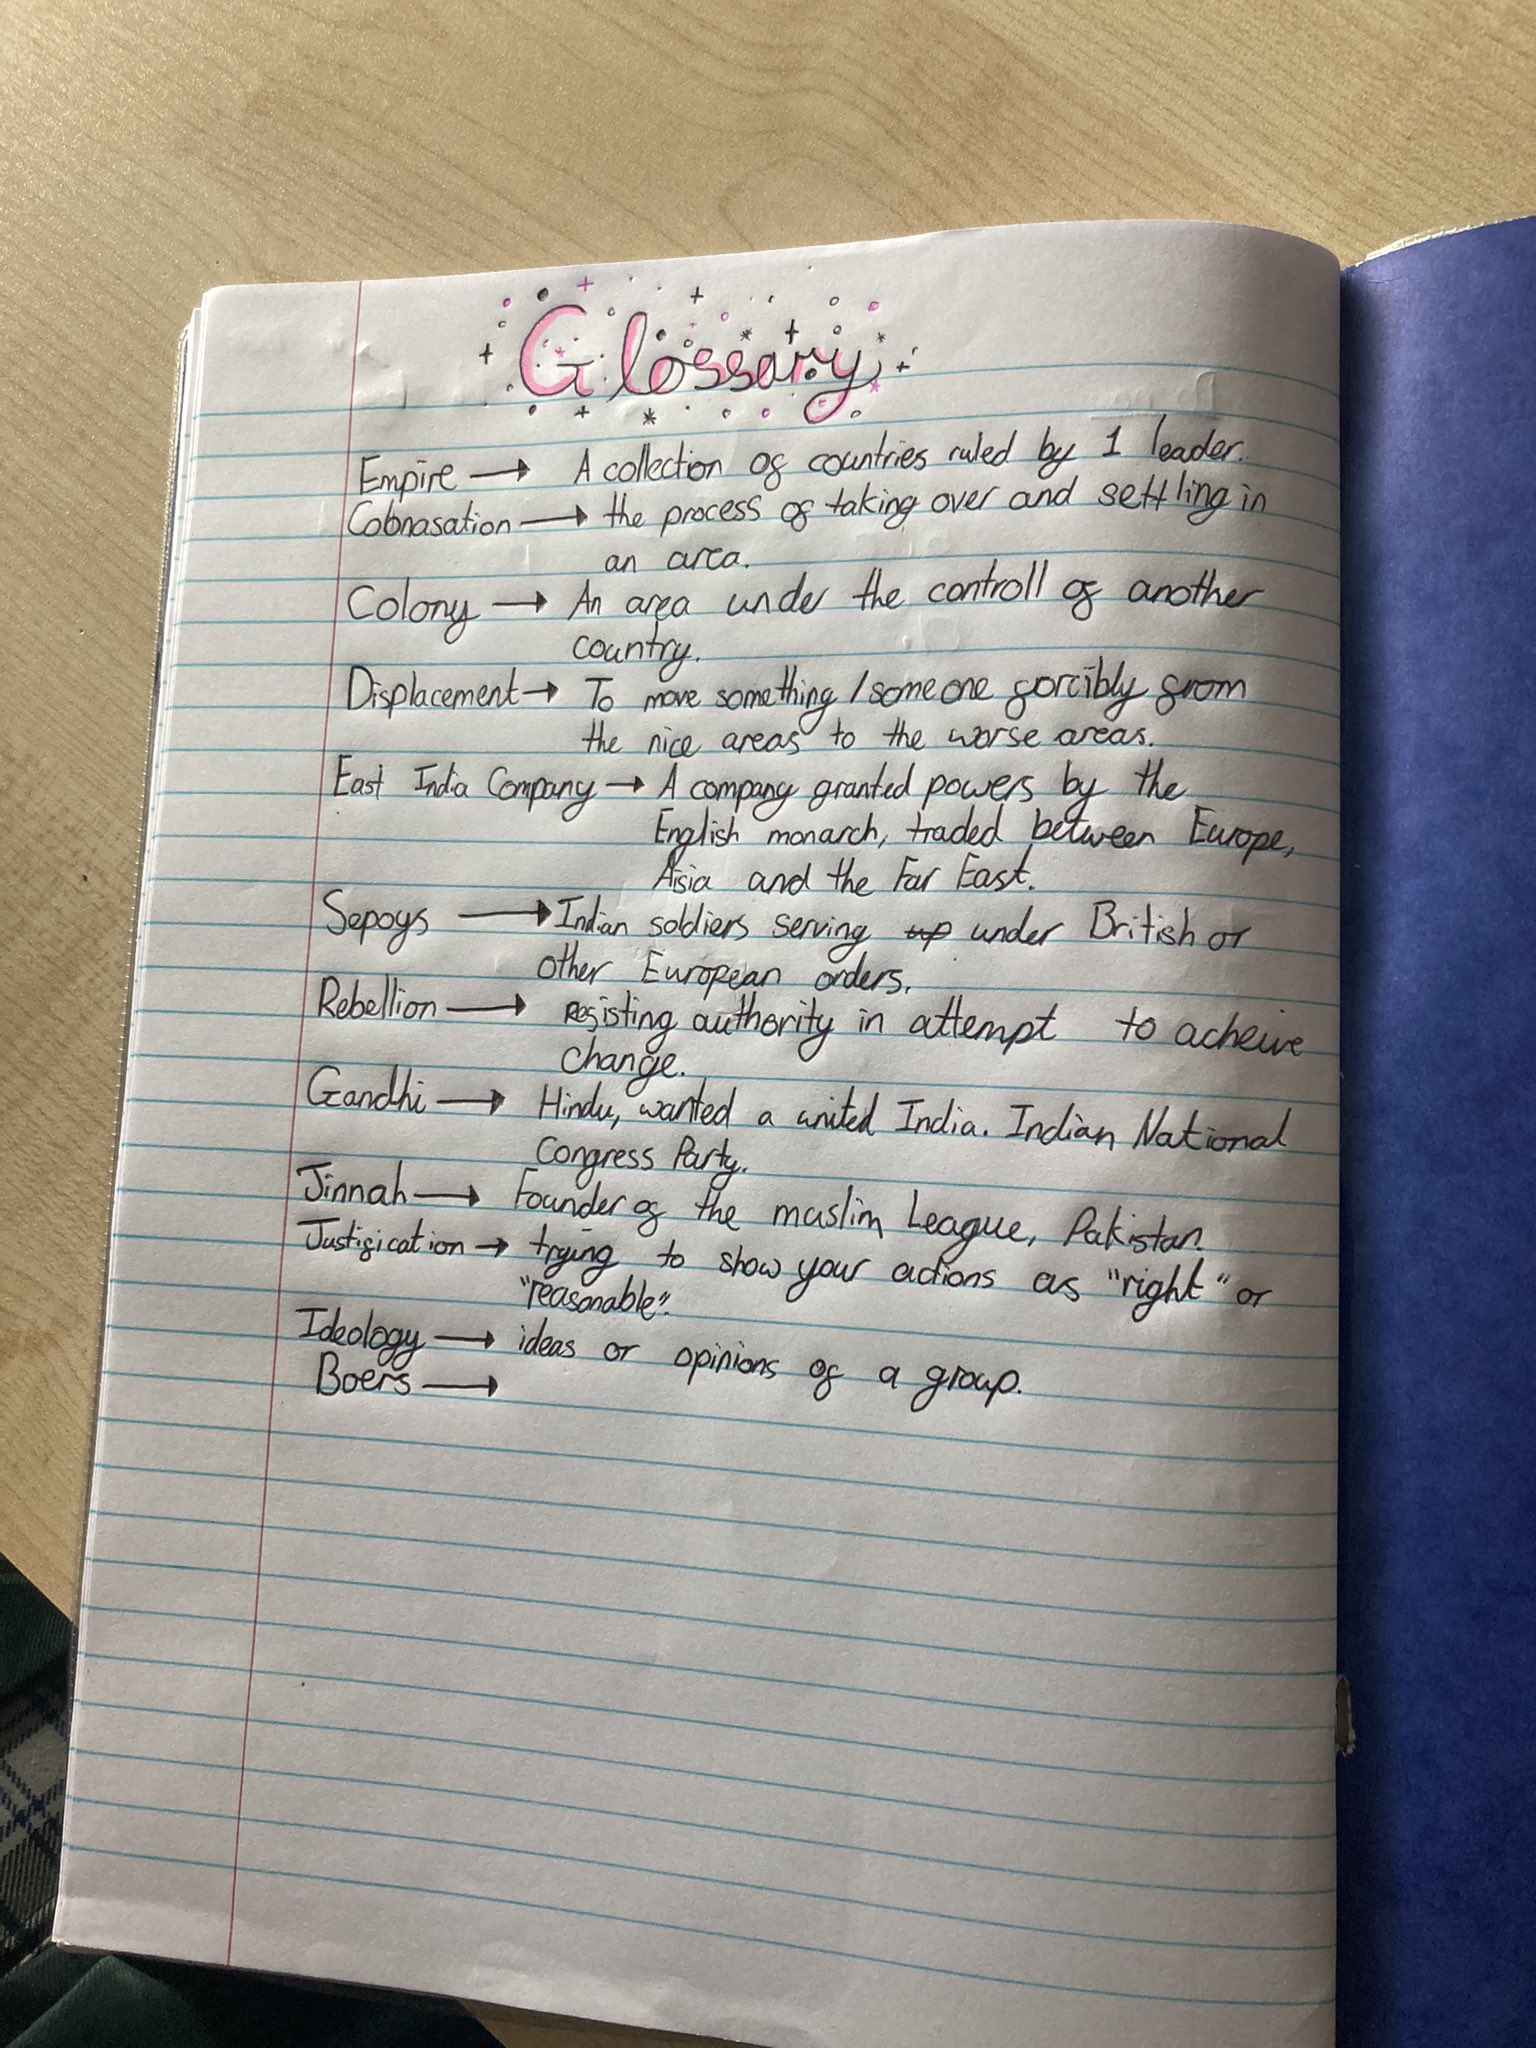 Glossary
Empire → A collection of countries ruled by 1 leader.
Colonasation → the process of taking over and settling in
an area.
Colony → An area under the controll of another
country.
Displacement → To move something / someone forcibly from
the nice areas to the worse areas.
East India Company → A company granted powers by the
English monarch, traded between Europe,
Asia and the Far East.
Sepoys → Indian soldiers serving up under British or
other European orders.
Rebellion → resisting authority in attempt to acheive
change.
Gandhi → Hindu, wanted a united India. Indian National
Congress Party.
Jinnah → Founder of the muslim League, Pakistan.
Justification → trying to show your actions as "right" or
"reasonable".
Ideology → ideas or opinions of a group.
Boers →